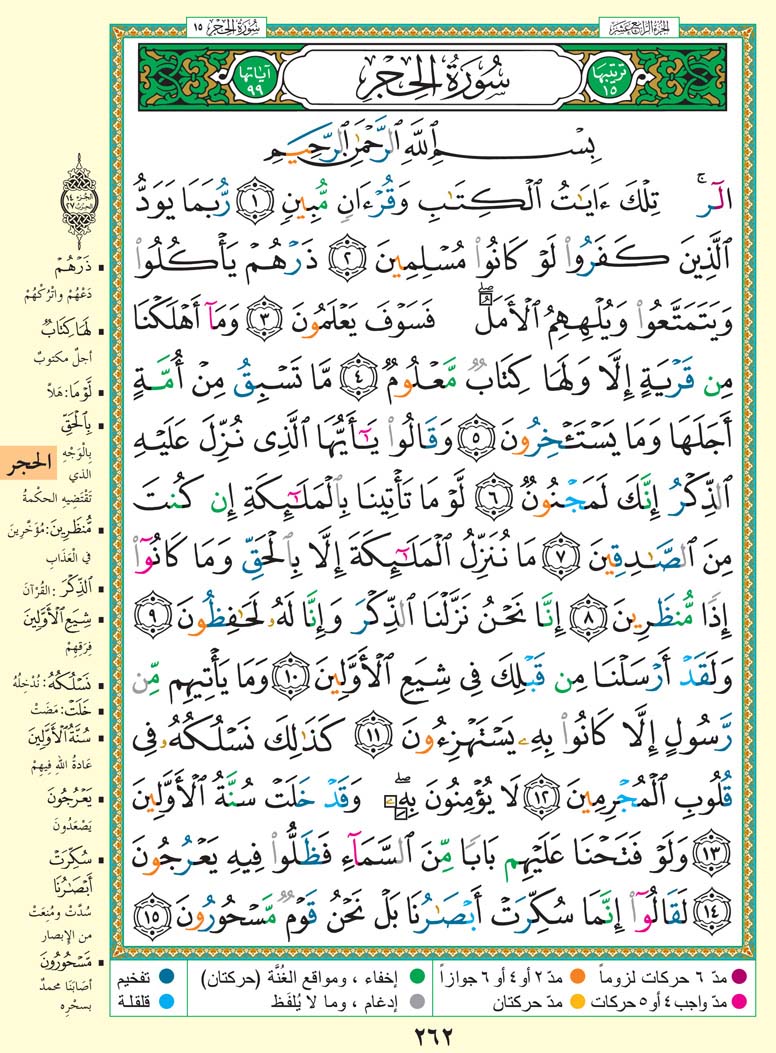 الجزء الرابع عشر
سُورَةُ الحِجْرِ ١٥
ترتيبها ١٥
سُورَةُ الحِجْرِ
آياتها ٩٩
بِسْمِ ٱللَّهِ ٱلرَّحْمَٰنِ ٱلرَّحِيمِ
الٓرۚ تِلْكَ ءَايَٰتُ ٱلْكِتَٰبِ وَقُرْءَانٍ مُّبِينٍ ١ رُّبَمَا يَوَدُّ
ٱلَّذِينَ كَفَرُوا۟ لَوْ كَانُوا۟ مُسْلِمِينَ ٢ ذَرْهُمْ يَأْكُلُوا۟
وَيَتَمَتَّعُوا۟ وَيُلْهِهِمُ ٱلْأَمَلُۖ فَسَوْفَ يَعْلَمُونَ ٣ وَمَآ أَهْلَكْنَا
مِن قَرْيَةٍ إِلَّا وَلَهَا كِتَابٌ مَّعْلُومٌ ٤ مَّا تَسْبِقُ مِنْ أُمَّةٍ
أَجَلَهَا وَمَا يَسْتَـْٔخِرُونَ ٥ وَقَالُوا۟ يَٰٓأَيُّهَا ٱلَّذِى نُزِّلَ عَلَيْهِ
ٱلذِّكْرُ إِنَّكَ لَمَجْنُونٌ ٦ لَّوْ مَا تَأْتِينَا بِٱلْمَلَٰٓئِكَةِ إِن كُنتَ
مِنَ ٱلصَّٰدِقِينَ ٧ مَا نُنَزِّلُ ٱلْمَلَٰٓئِكَةَ إِلَّا بِٱلْحَقِّ وَمَا كَانُوٓا۟
إِذًا مُّنظَرِينَ ٨ إِنَّا نَحْنُ نَزَّلْنَا ٱلذِّكْرَ وَإِنَّا لَهُۥ لَحَٰفِظُونَ ٩
وَلَقَدْ أَرْسَلْنَا مِن قَبْلِكَ فِى شِيَعِ ٱلْأَوَّلِينَ ١٠ وَمَا يَأْتِيهِم مِّن
رَّسُولٍ إِلَّا كَانُوا۟ بِهِۦ يَسْتَهْزِءُونَ ١١ كَذَٰلِكَ نَسْلُكُهُۥ فِى
قُلُوبِ ٱلْمُجْرِمِينَ ١٢ لَا يُؤْمِنُونَ بِهِۦۖ وَقَدْ خَلَتْ سُنَّةُ ٱلْأَوَّلِينَ
١٣ وَلَوْ فَتَحْنَا عَلَيْهِم بَابًا مِّنَ ٱلسَّمَآءِ فَظَلُّوا۟ فِيهِ يَعْرُجُونَ
١٤ لَقَالُوٓا۟ إِنَّمَا سُكِّرَتْ أَبْصَٰرُنَا بَلْ نَحْنُ قَوْمٌ مَّسْحُورُونَ ١٥
الجزء ١٤
الحزب ٢٧
ذَرْهُمْ
دَعْهُمْ واتْرُكْهُمْ
لَهَا كِتَابٌ
أجلٌ مكتوبٌ
لَّوْ مَا: هَلاَّ
بِٱلْحَقِّ
بِالوَجْهِ
الذي
تَقْتَضِيهِ الحكْمةُ
مُّنظَرِينَ: مُؤَخَّرِينَ
في الْعَذَابِ
ٱلذِّكْرَ: القُرْآنَ
شِيَعِ ٱلْأَوَّلِينَ
فِرَقِهِمْ
نَسْلُكُهُ: نُدْخِلُهُ
خَلَتْ: مَضَتْ
سُنَّةُ ٱلْأَوَّلِينَ
عَادَةُ اللهِ فِيهِمْ
يَعْرُجُونَ
يَصْعَدُونَ
سُكِّرَتْ
أَبْصَٰرُنَا
سُدَّتْ ومُنِعَتْ
من الإبصار
مَّسْحُورُونَ
أصَابَنَا محمدٌ
بسحْرِه
الحجر
مدّ ٦ حركات لزوماً
مدّ ٢ أو ٤ أو ٦ جوازاً
إخفاء ، ومواقع الغُنَّة (حركتان)
تفخيم
مدّ واجب ٤ أو ٥ حركات
مدّ حركتان
إدغام ، وما لا يُلفَظ
قلقلة
٢٦٢